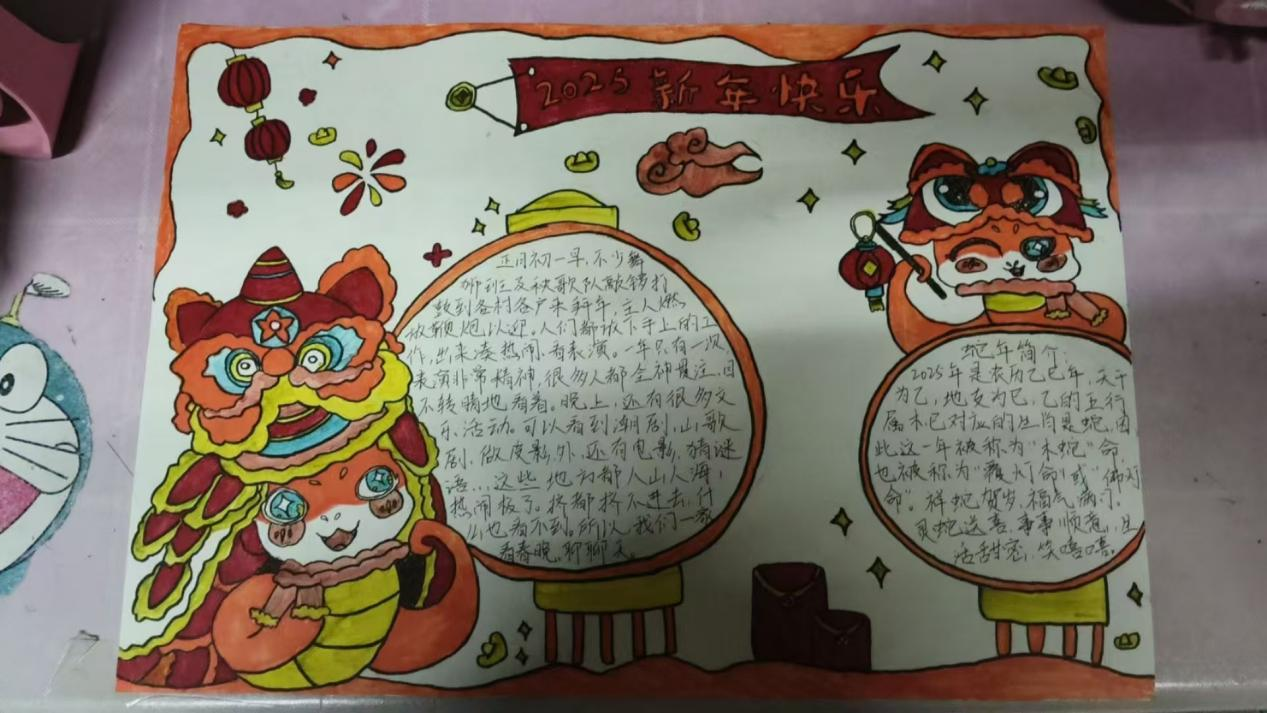 2025新年快乐
正月初一早，不少舞
狮班及秧歌队敲锣打
鼓到各村各户来拜年，主人燃
放鞭炮以迎。人们都放下手上的工
作，出来凑热闹，看表演。一年只有一次，
表演非常精神，很多人都全神贯注，目
不转睛地看着。晚上，还有很多文
乐活动。可以看到潮剧，山歌
剧，做皮影，外，还有电影，猜谜
语…这些 地方都人山人海，
热闹极了。挤都挤不进去，什
么也看不到。所以我们一家
看春晚，聊聊天。
蛇年简介：
2025年是农历乙巳年，天干
为乙，地支为巳，乙的五行
属木巳对应的生肖是蛇，因
此这一年被称为"木蛇"命
也被称为"覆灯命"或"佛灯
命"。祥蛇贺岁，福气满门，
灵蛇送喜，事事顺意，生
活甜蜜，笑嘻嘻。